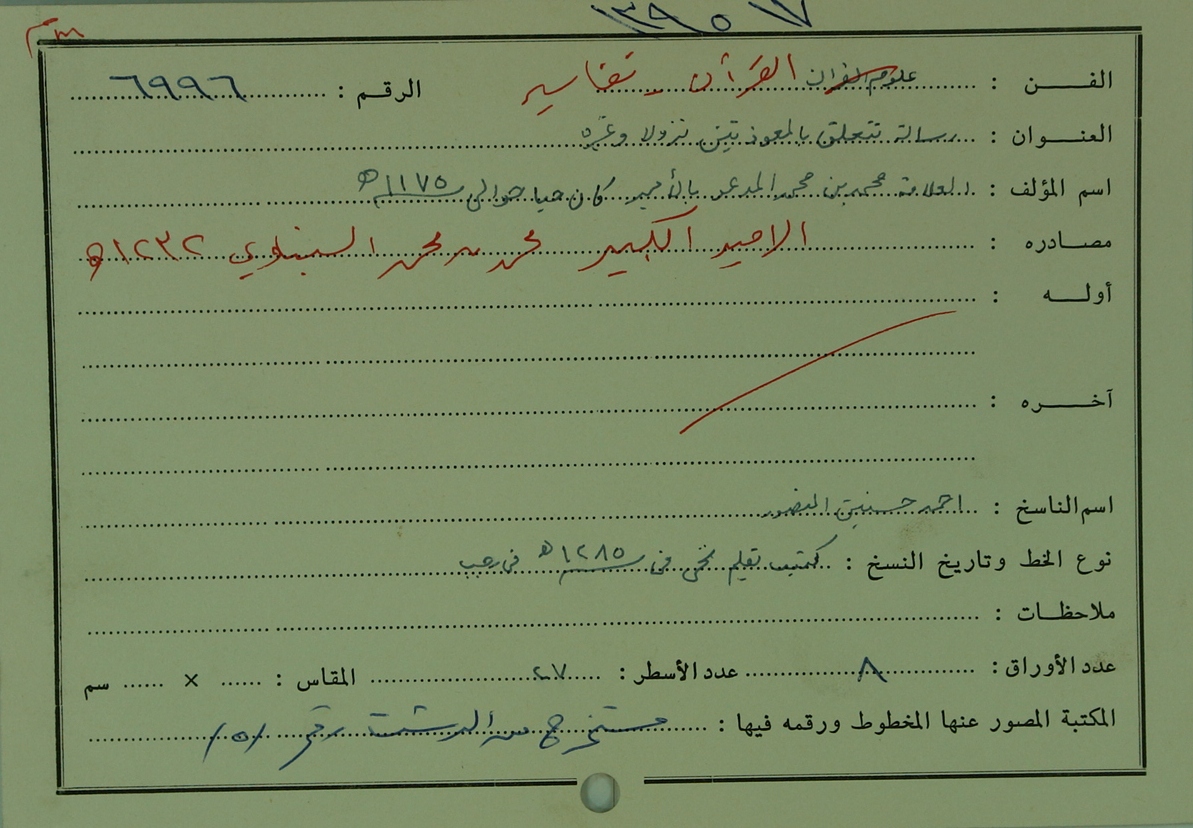 ٣٩٥٠٧
الفن : علوم القرآن القرآن - تفاسير الرقم : ٦٩٩٦
العنوان : رسالة تتعلق بالمعوذتين نزولا وغيره
اسم المؤلف : العلامة محمد بن محمد المدعو بالأمير كان حيا حوالى ١١٧٥ هـ
مصادره : الامير الكبير محمد بن محمد السنباوي ١٢٣٢ هـ
أوله :
آخره :
اسم الناسخ : احمد حسنين المنصور
نوع الخط وتاريخ النسخ : كتبت بقلم فى ١٢٨٥ هـ فى رجب
ملاحظات :
عدد الأوراق : ٨ عدد الأسطر : ٢٧ المقاس : × سم
المكتبة المصور عنها المخطوط ورقمه فيها : مستخرج من الدشت رقم /٥١